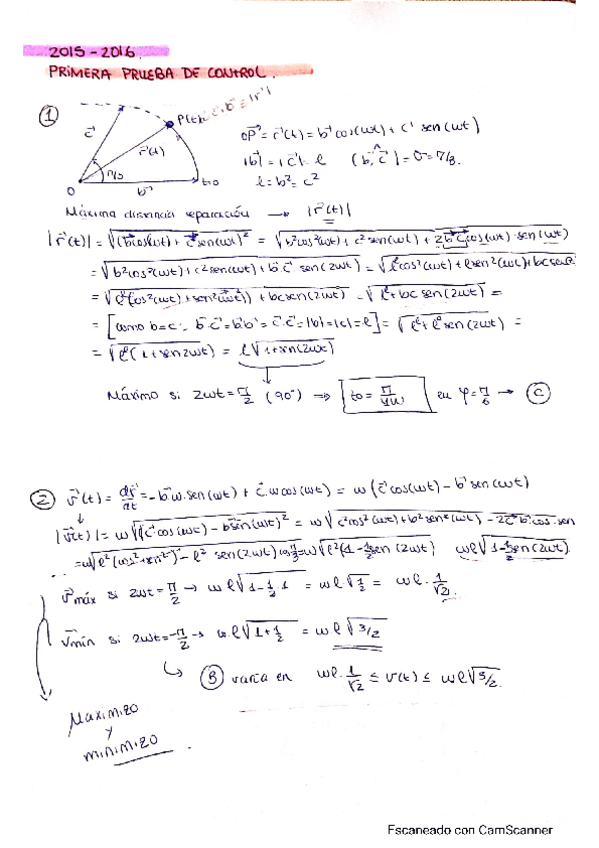 2015-2016.
PRIMERA PRUEBA DE CONTROL.
①
P(t)
c⃗
r⃗(t)
π/3
O
b⃗
t=0
OP⃗ = r⃗(t) = b⃗ cos(wt) + c⃗ sen(wt)
|b⃗| = |c⃗| = l
l = b² = c²
Máxima distancia separación → |r⃗(t)|
|r⃗(t)| = √(b⃗cos(wt) + c⃗sen(wt))² = √b²cos²(wt) + c²sen²(wt) + 2b⃗c⃗cos(wt)·sen(wt)
= √b²cos²(wt) + c²sen(wt) + b⃗·c⃗ sen(2wt) = √l²cos²(wt) + l²sen²(wt) + bc sen
= √l²(cos²(wt) + sen²(wt)) + bc sen(2wt) = √l² + bc sen(2wt) =
= [como b=c ∴ b⃗·c⃗ = b⃗·b⃗ = c⃗·c⃗ = |b| = |c| = l] = √l² + l² sen(2wt) =
= √l²(1 + sen 2wt) = l√1 + sen(2wt)
Máximo si 2wt = π/2 (90°) ⇒ to = π/4w en φ = π/6 → ⓒ
② v⃗(t) = dr⃗/dt = -b⃗w·sen(wt) + c⃗·w cos(wt) = w(c⃗cos(wt) - b⃗ sen(wt)
|v⃗(t)| = w√(c⃗cos(wt) - b⃗sen(wt))² = w√c²cos²(wt) + b²sen²(wt) - 2c⃗b⃗·cos·sen
= w√l²(cos² + sen²) - l² sen(2wt) cos π/3 = w√l²(1 - 1/2 sen(2wt) wl√1 - 1/2 sen(2wt)
v⃗máx si 2wt = π/2 → wl√1 - 1/2·1 = wl√1/2 = wl·1/√2.
v⃗mín si 2wt = -π/2 → w·l√1 + 1/2 = wl√3/2
Ⓑ varía en wl·1/√2 ≤ v(t) ≤ wl√3/2.
Maximizo
y
minimizo
Escaneado con CamScanner